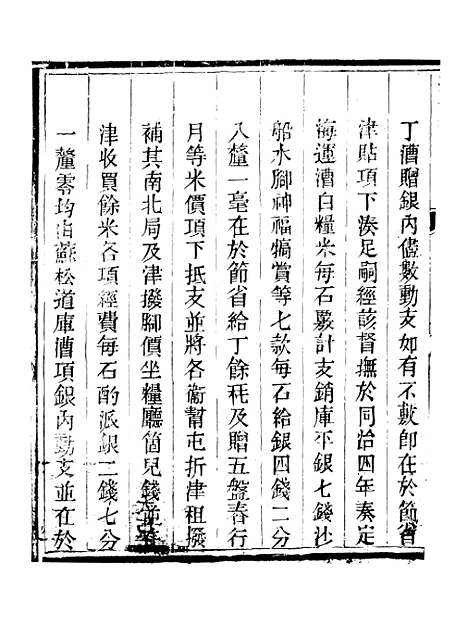 丁漕贈銀內儘數動支如有不敷卽在於節省
津貼項下湊足嗣經該督撫於同治四年奏定
海運漕白糧米每石覈計支銷庫平銀七錢沙
船水腳神福犒賞等七款每石給銀四錢二分
八釐一毫在於節省給丁餘耗及贈五盤舂行
月等米價項下抵支並將各衞幫屯折津租撥
補其南北局及津撥腳價坐糧廳箇兒錢並
津收買餘米各項經費每石酌派銀二錢七分
一釐零均由蘇松道庫漕項銀內動支並在於